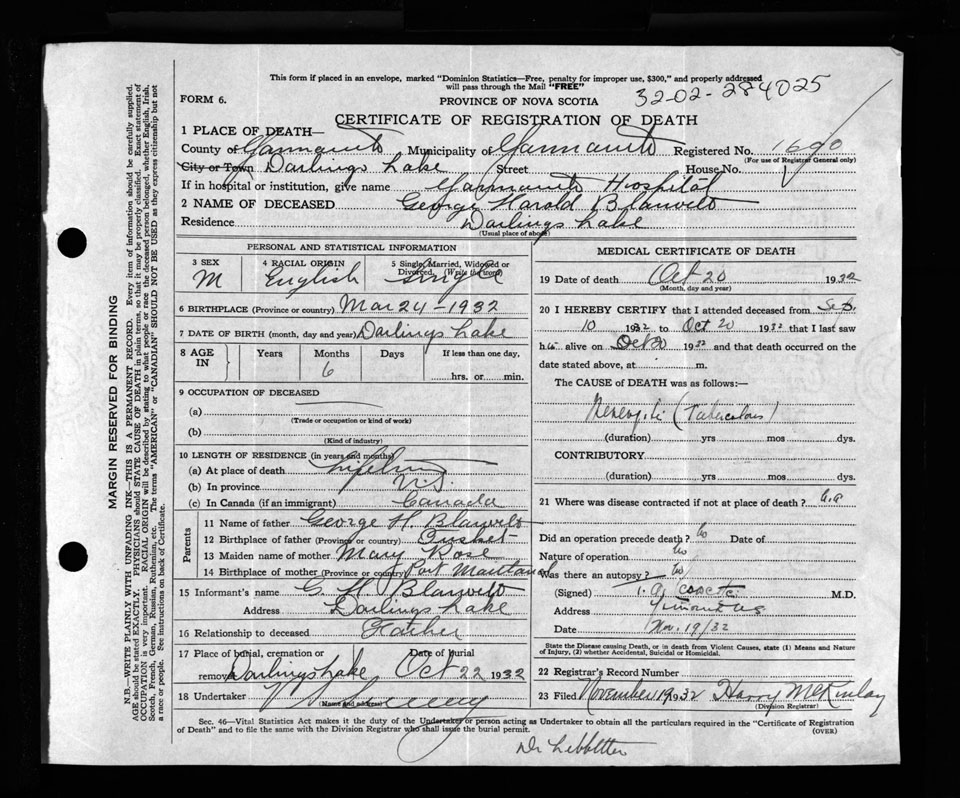 This form if placed in an envelope, marked "Dominion Statistics—Free, penalty for improper use, $300," and properly addressed
will pass through the Mail "FREE"
32-02-284025
FORM 6.
PROVINCE OF NOVA SCOTIA
CERTIFICATE OF REGISTRATION OF DEATH
1 PLACE OF DEATH—
County of Yarmouth Municipality of Yarmouth Registered No. 1690
(For use of Registrar General only)
City or Town Darlings Lake Street House No.
If in hospital or institution, give name Yarmouth Hospital
2 NAME OF DECEASED George Harold Blauvelt
Residence Darlings Lake
(Usual place of abode)
PERSONAL AND STATISTICAL INFORMATION
3 SEX 4 RACIAL ORIGIN 5 Single, Married, Widowed or Divorced. (Write the word)
M English Single
6 BIRTHPLACE (Province or country) Mar 24 - 1932
7 DATE OF BIRTH (month, day and year) Darlings Lake
8 AGE IN Years Months Days If less than one day,
6 hrs. or min.
9 OCCUPATION OF DECEASED
(a)
(Trade or occupation or kind of work)
(b)
(Kind of industry)
10 LENGTH OF RESIDENCE (in years and months)
(a) At place of death Lifetime
(b) In province N.S.
(c) In Canada (if an immigrant) Canada
Parents
11 Name of father George H. Blauvelt
12 Birthplace of father (Province or country) Tusket
13 Maiden name of mother Mary Rose
14 Birthplace of mother (Province or country) Port Maitland
15 Informant's name G. H. Blauvelt
Address Darlings Lake
16 Relationship to deceased Father
17 Place of burial, cremation or removal Date of burial
Darlings Lake Oct 22 1932
18 Undertaker
(Name and address)
MEDICAL CERTIFICATE OF DEATH
19 Date of death Oct 20 1932
(Month, day and year)
20 I HEREBY CERTIFY that I attended deceased from Sept.
10 1932 to Oct 20 1932 that I last saw
h alive on Oct 20 1932 and that death occurred on the
date stated above, at m.
The CAUSE of DEATH was as follows:—
(Tuberculous)
(duration) yrs mos dys.
CONTRIBUTORY
(duration) yrs mos dys.
21 Where was disease contracted if not at place of death?
Did an operation precede death? No Date of
Nature of operation No
Was there an autopsy? No
(Signed) M.D.
Address
Date Nov. 19/32
State the Disease causing Death, or in death from Violent Causes, state (1) Means and Nature
of Injury, (2) whether Accidental, Suicidal or Homicidal.
22 Registrar's Record Number
23 Filed November 19 1932 Harry McKinlay
(Division Registrar)
Sec. 46—Vital Statistics Act makes it the duty of the Undertaker or person acting as Undertaker to obtain all the particulars required in the "Certificate of Registration
of Death" and to file the same with the Division Registrar who shall issue the burial permit.
(OVER)
MARGIN RESERVED FOR BINDING
N.B.—WRITE PLAINLY WITH UNFADING INK—THIS IS A PERMANENT RECORD. Every item of information should be carefully supplied.
AGE should be stated EXACTLY. PHYSICIANS should STATE CAUSE OF DEATH in plain terms, so that it may be properly classified. Exact statement of
OCCUPATION is very important. RACIAL ORIGIN will be described by stating to what people or race the deceased person belonged, whether English, Irish,
Scotch, French, German, Russian, Ruthenian, etc. The terms "AMERICAN" or "CANADIAN" SHOULD NOT BE USED as they express citizenship but not
a race or people. See instructions on back of Certificate.